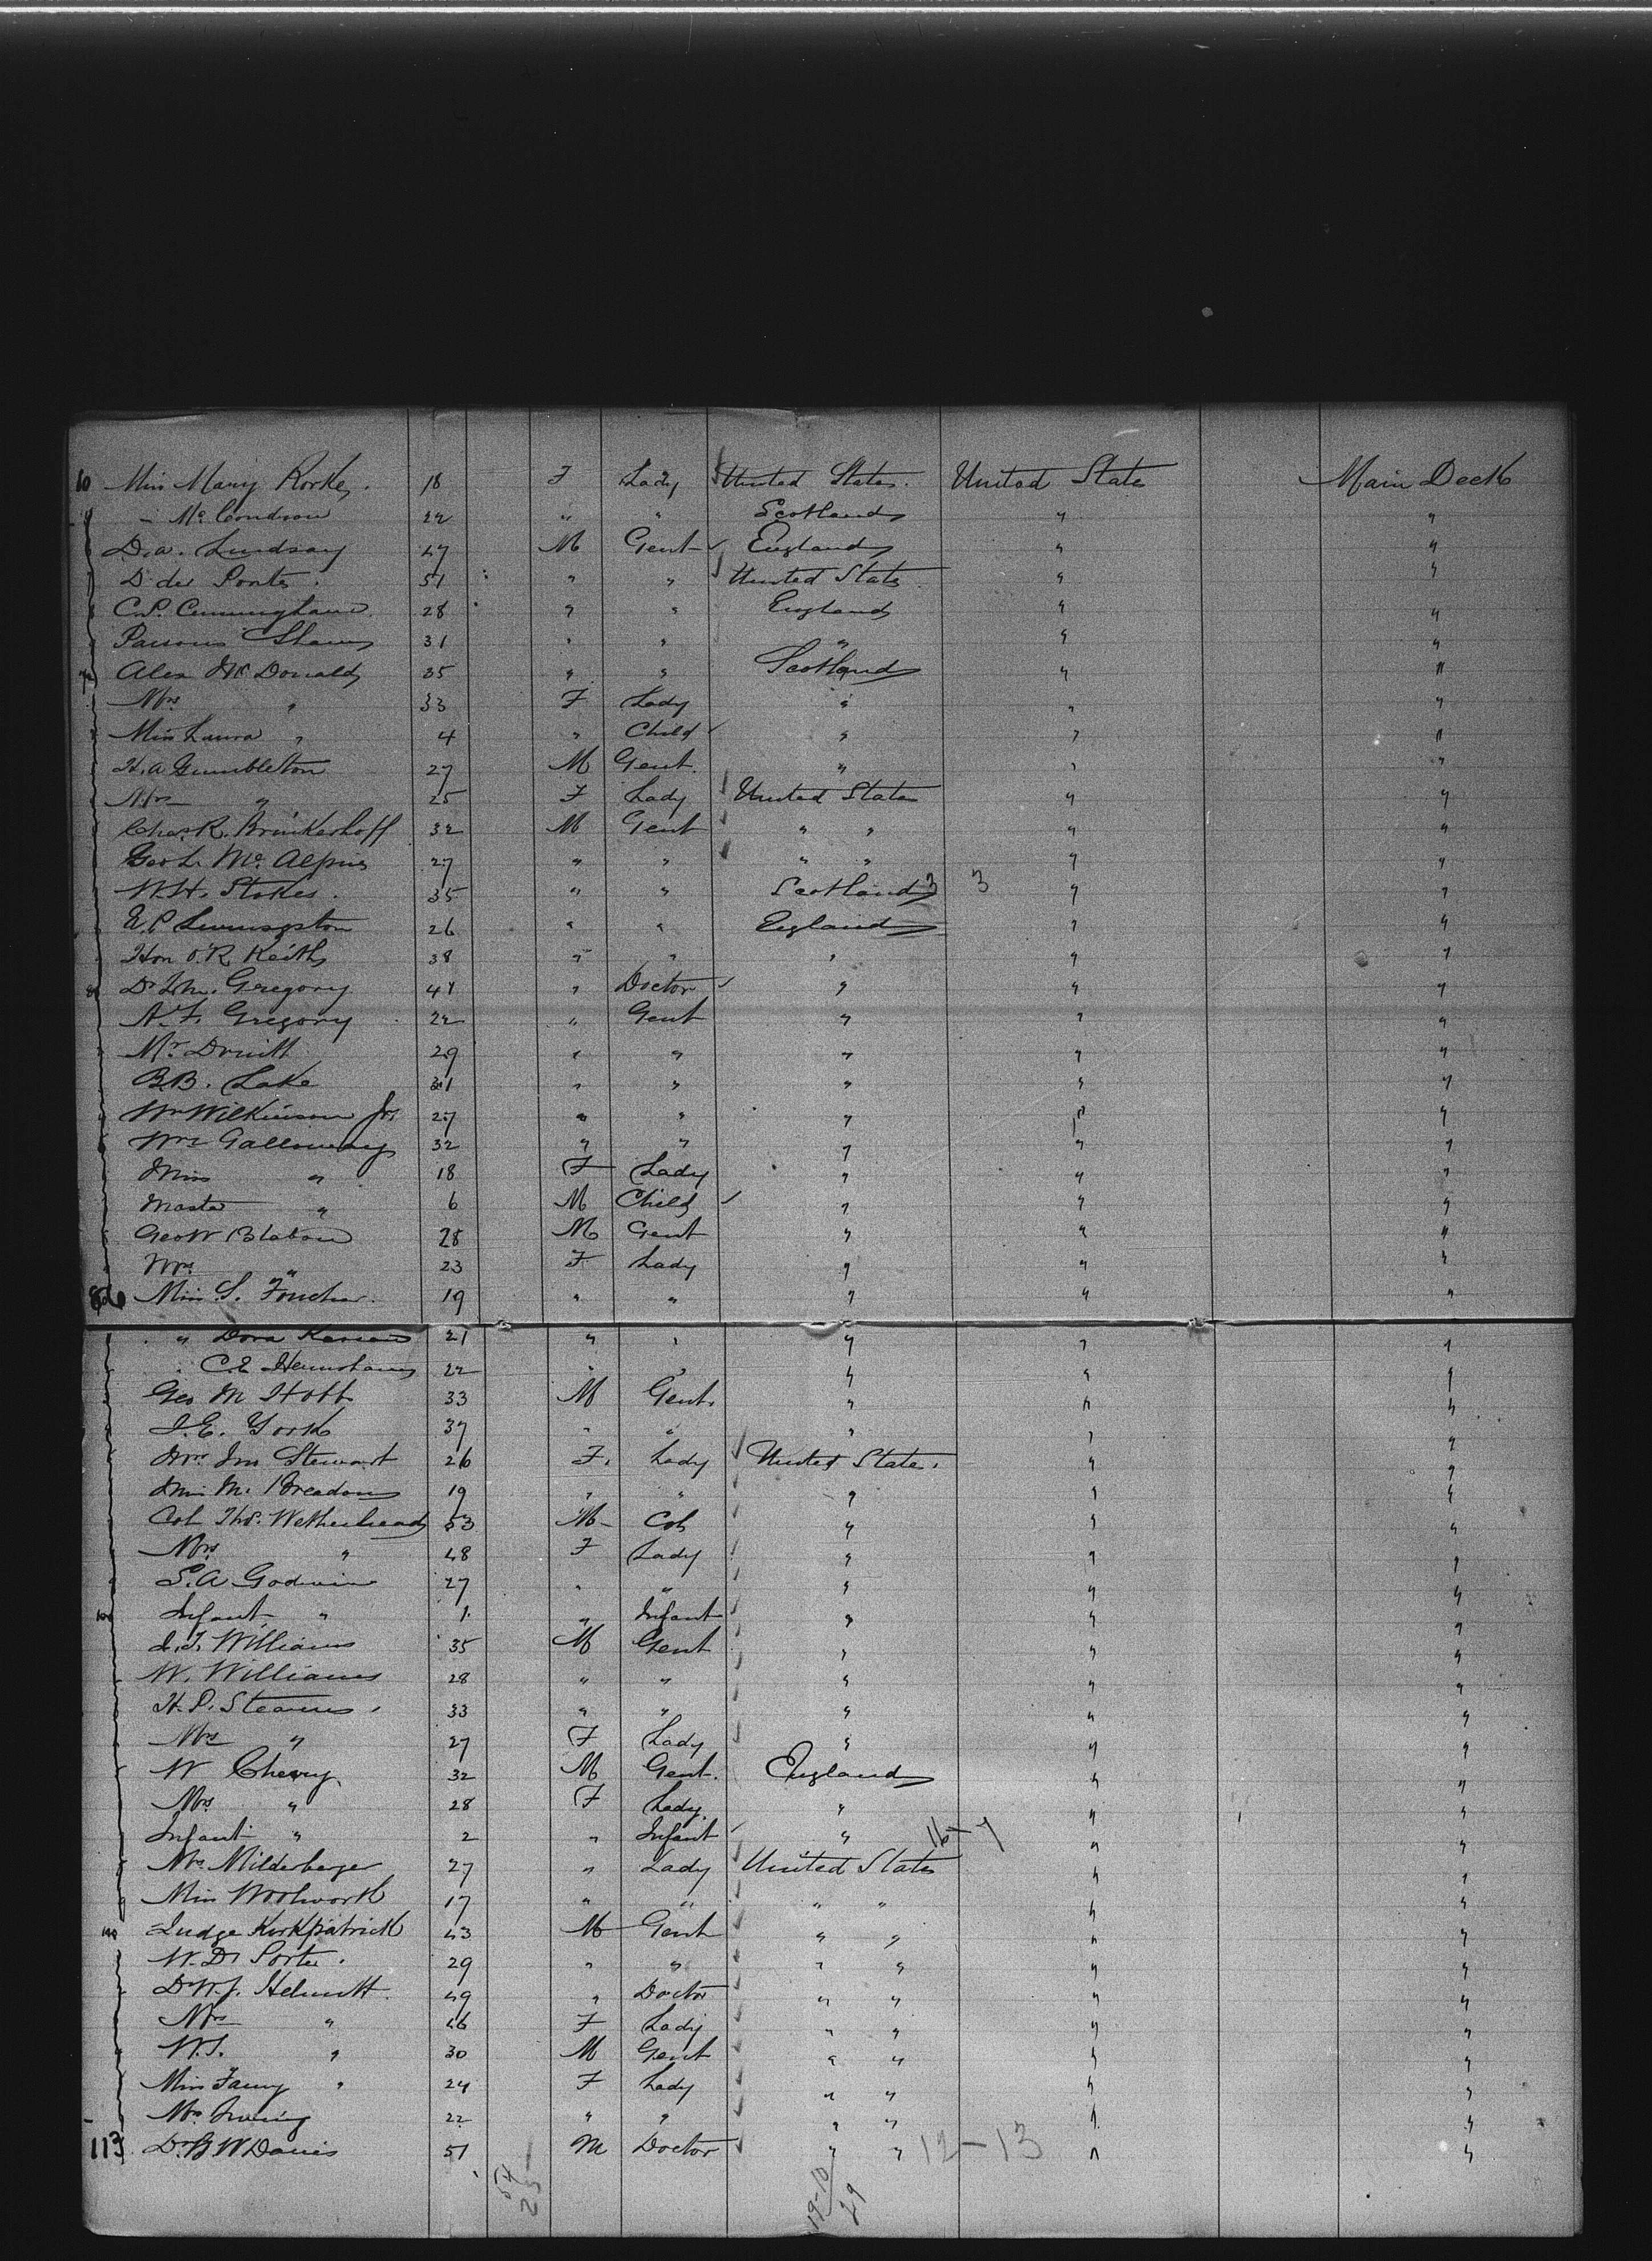 60 Miss Mary Rorke. 18 F Lady United States. United State Main Deck
" Mc 22 " " Scotland " "
D. A. Lindsay 47 M Gent England " "
D de Ponte. 51 " " United State " "
C. P. Cunningham 28 " " England " "
Parsons Shaw 31 " " " " "
Alex McDonald 35 " " Scotland " "
Mrs " 33 F Lady " " "
Miss Laura " 4 " Child " " "
H. A Gumbleton 27 M Gent. " " "
Mrs " 25 F Lady United States " "
Chas R. Brinkerhoff 32 M Gent " " " "
Geo L. Mc Alpin 27 " " " " " "
W. H. Stokes. 35 " " Scotland 3 3 " "
E. P Livingston 26 " " England " "
Hon O. R. Keith 38 " " " " "
Dr Gregory 47 " Doctor " " "
N. F. Gregory 22 " Gent " " "
Mr Druitt 29 " " " " "
B. B. Lake 31 " " " " "
Wm Wilkinson Jr. 27 " " " " "
Galloway 32 " " " " "
Miss " 18 F Lady " " "
Master " 6 M Child " " "
Geo W Blabon 28 M Gent " " "
Mrs " 23 F Lady " " "
86 Miss S. 19 " " " " "
" Dora 21 " " " " "
" C. E 22 " " " " "
Geo M 33 M Gent. " " "
J. E. York 37 " " " " "
Mrs Jno Stewart 26 F. Lady United State. " "
Miss M. 19 " " " " "
Col Thos. Wetherhead 53 M Col " " "
Mrs " 48 F Lady " " "
S. A Godwin 27 " " " " "
Infant " 1 " Infant " " "
Williams 35 M Gent " " "
W. Williams 28 " " " " "
H. P. Stearns 33 " " " " "
Mrs " 27 F Lady " " "
W Cheny 32 M Gent. England " "
Mrs " 28 F Lady. " " "
Infant " 2 " Infant " 16-7 " "
Mrs Milderberger 27 " Lady United States " "
Miss Woolworth 17 " " " " " "
Judge Kirkpatrick 43 M Gent " " " "
W. D. Porter. 29 " " " " " "
Dr W. J. Helmuth 49 " Doctor " " " "
Mrs " 46 F Lady " " " "
W. T. " 30 M Gent " " " "
Miss Fanny " 24 F Lady " " " "
Mrs Irving 22 " " " " " "
113 Dr B W Davis 51 M Doctor " " 12-13 " "
54
25
19-10
29